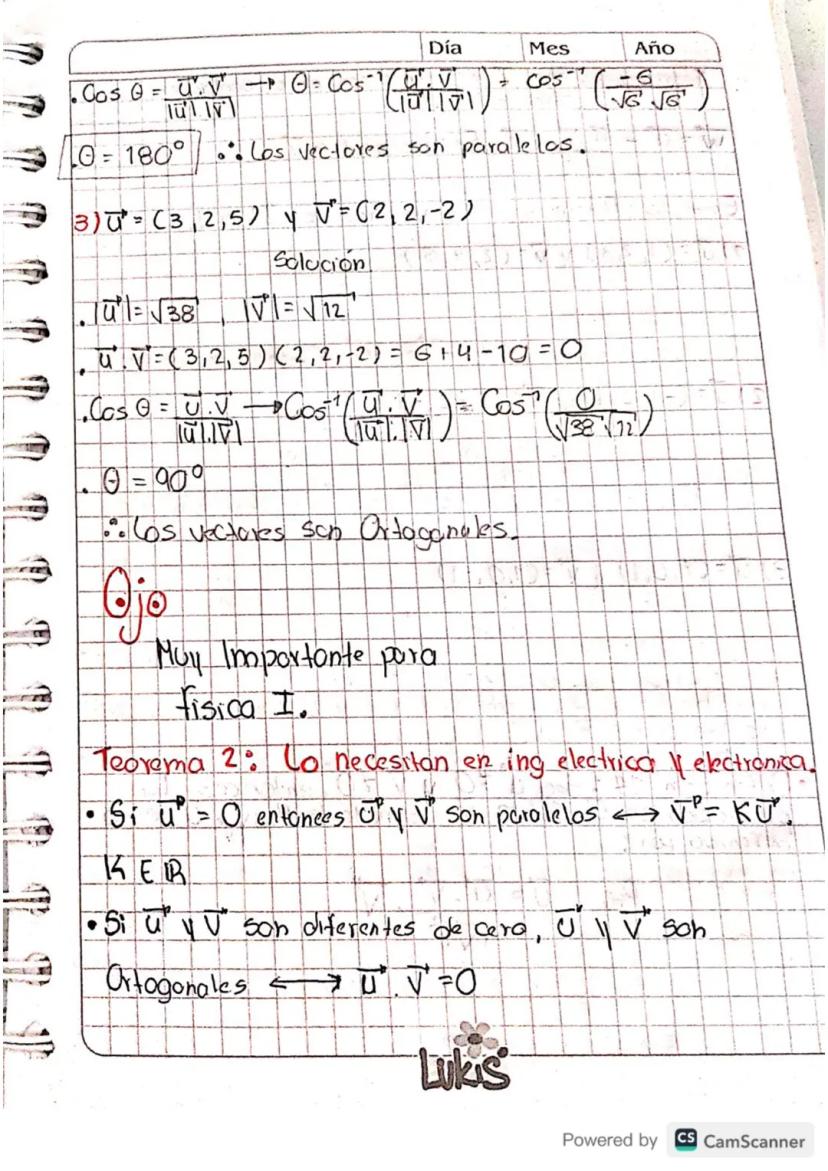 Día Mes Año
. Cos θ = u⃗.v⃗/|u⃗||v⃗| → θ = Cos⁻¹(u⃗.v⃗/|u⃗||v⃗|) = cos⁻¹(-6/√6 √6)
. θ = 180° ∴ Los vectores son paralelos.
3) u⃗ = (3,2,5) y v⃗ = (2,2,-2)
Solución
. |u⃗| = √38 , |v⃗| = √12
. u⃗.v⃗ = (3,2,5)(2,2,-2) = 6+4-10 = 0
. Cos θ = u⃗.v⃗/|u⃗|.|v⃗| → Cos⁻¹(u⃗.v⃗/|u⃗|.|v⃗|) = Cos⁻¹(0/√38 √12)
. θ = 90°
∴ Los vectores son Ortogonales.
Ojo
Muy Importante para
física I.
Teorema 2: Lo necesitan en ing electrica y electronica.
• Si u⃗ = 0 entonces u⃗ y v⃗ son paralelos ↔ v⃗ = Ku⃗.
K E IR
• Si u⃗ y v⃗ son diferentes de cero, u⃗ y v⃗ son
Ortogonales ↔ u⃗.v⃗ = 0
Lukis
Powered by CS CamScanner